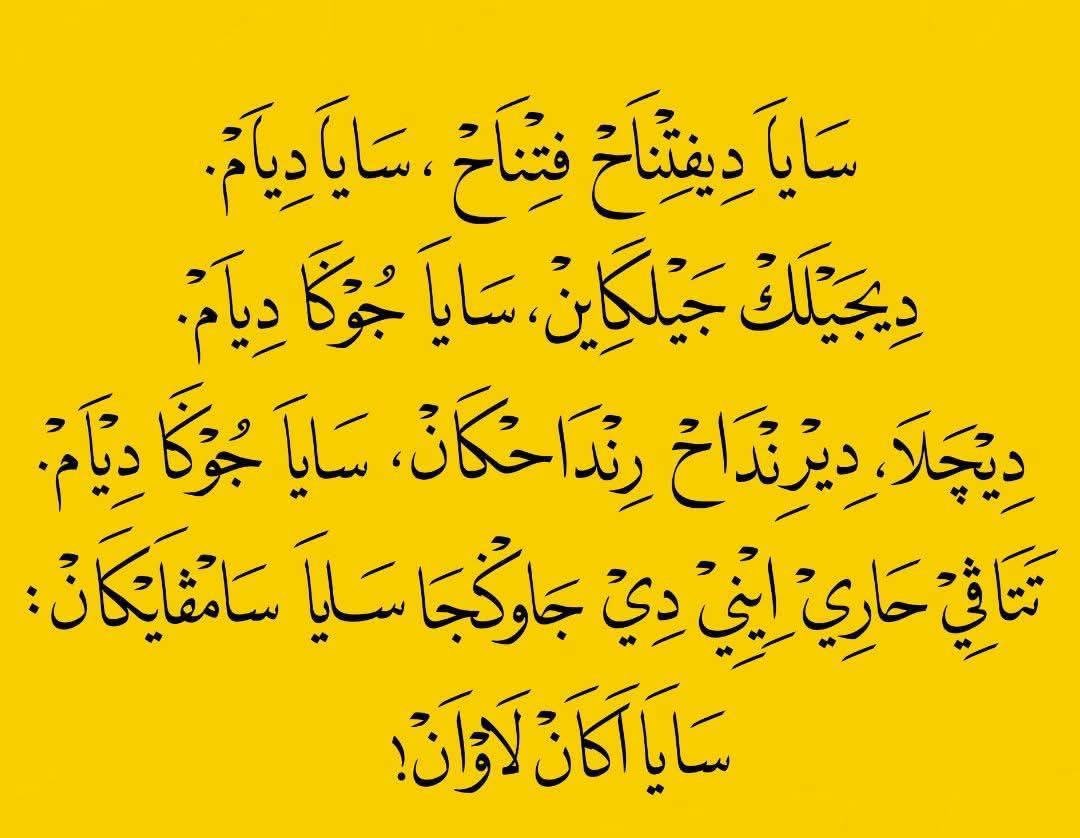 سَاياَ دِيفِتْناَحْ فِتْناَحْ ، سَاياَ دِياَمْ.
دِيجَيْلَكْ جَيْلكَاِينْ، سَاياَ جُوْݢَا دِياَمْ.
دِيْچَلاَ، دِيْرِنْدَاحْ رِنْدَاحْكَانْ، سَاياَ جُوْݢَا دِيْاَمْ.
تَتَاڤِيْ حَارِيْ اِيْنِيْ دِيْ جَاوݢْجَا سَاياَ سَامْڤَايْكَانْ:
سَاياَ اَكَانْ لَاوْاَنْ!